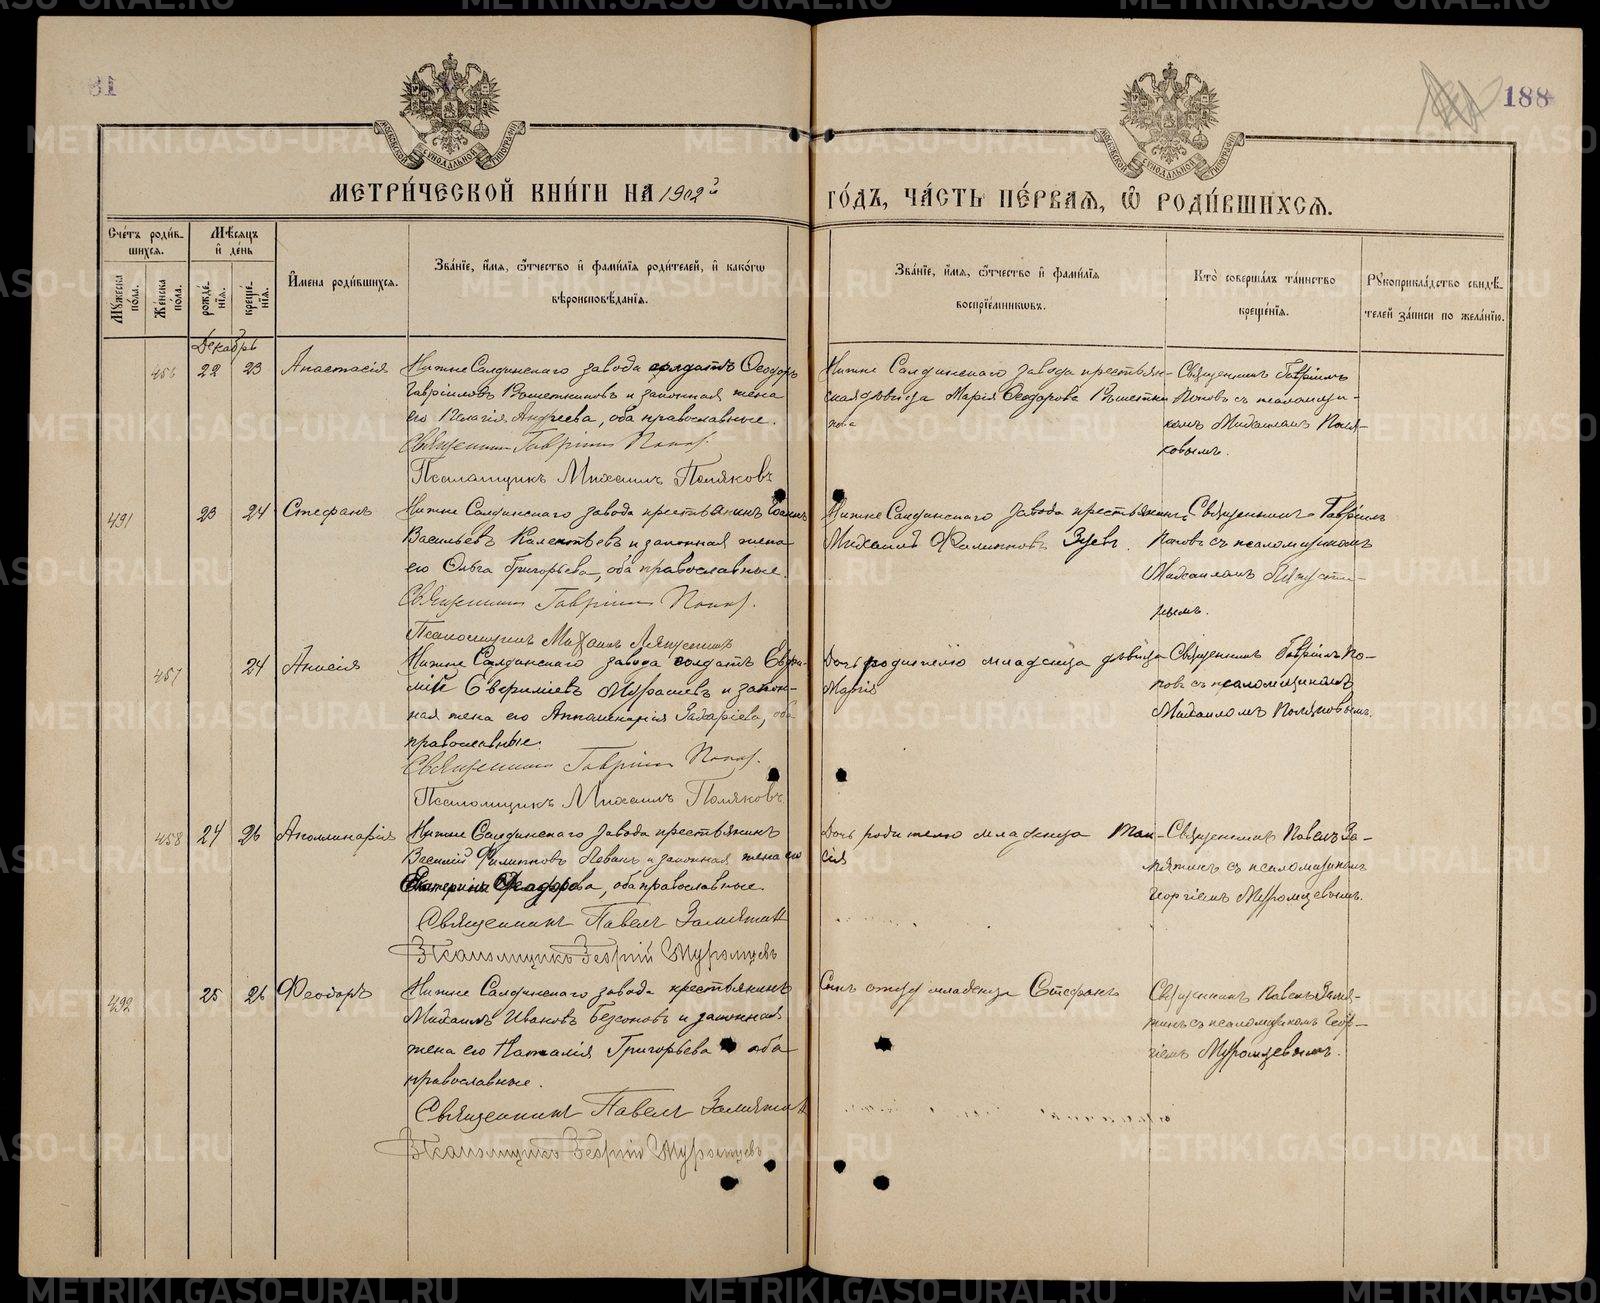 188
МЕТРИ́ЧЕСКОЙ КНИ́ГИ НА 1902й
ГО́ДЪ, ЧА́СТЬ ПЕ́РВАѦ, Ѽ РОДИ́ВШИХСѦ.
МОСКОВСКОЙ СѴНОДАЛЬНОЙ ТИПОГРАФІИ
МОСКОВСКОЙ СѴНОДАЛЬНОЙ ТИПОГРАФІИ
Сче́тъ роди́в-
шихсѧ.
Мѣ́сѧцъ
и҆ де́нь
Мꙋ́жеска по́ла.
Же́нска по́ла.
рожде́-
нїѧ.
креще́-
нїѧ.
И҆мена роди́вшихсѧ.
Зва́нїе, и҆́мѧ, ѻ҆́тчество и҆ фамилїѧ роди́телей, и҆ како́гѡ
вѣроисповѣ́данїѧ.
Зва́нїе, и҆́мѧ, ѻ҆́тчество и҆ фами́лїѧ
воспрїе́мникѡвъ.
Кто̀ соверша́лъ та́инство
креще́нїѧ.
Рꙋкоприкла́дство свидѣ́-
телей за́писи по жела́нїю.
Декабрь
456 22 23 Анастасія Нижне Салдинскаго завода солдатъ Ѳеодоръ
Гавріиловъ Рѣшетниковъ и законная жена
его Пелагія Андреева, оба православные.
Священникъ Гавріилъ Поповъ.
Псаломщикъ Михаилъ Поляковъ
Нижне Салдинскаго завода крестьян-
ская дѣвица Марія Ѳеодорова Рѣшетни-
кова
Священникъ Гавріилъ
Поповъ съ псаломщи-
комъ Михаиломъ Поля-
ковымъ.
491 23 24 Стефанъ Нижне Салдинскаго завода крестьянинъ Іоаннъ
Васильевъ и законная жена
его Ольга Григорьева, оба православные.
Священникъ Гавріилъ Поповъ.
Псаломщикъ Михаилъ Ляпустинъ
Нижне Салдинскаго завода крестьянинъ
Михаилъ Филипповъ Зуевъ.
Священникъ Гавріилъ
Поповъ съ псаломщикомъ
Михаиломъ Ляпусти-
нымъ.
457 24 Анисія Нижне Салдинскаго завода солдатъ Евѳи-
мій Евѳиміевъ и закон-
ная жена его Захаріева, оба
православные.
Священникъ Гавріилъ Поповъ.
Псаломщикъ Михаилъ Поляковъ.
Дочь родителю младенца дѣвица
Марія
Священникъ Гавріилъ По-
повъ съ псаломщикомъ
Михаиломъ Поляковымъ.
458 24 26 Аполлинарія Нижне Салдинскаго завода крестьянинъ
Василій Филипповъ и законная жена его
Екатерина Ѳеодорова, оба православные.
Священникъ Павелъ Замятинъ
Псаломщикъ Георгій Муромцевъ
Дочь родителю младенца Таи-
сія
Священникъ Павелъ За-
мятинъ съ псаломщикомъ
Георгіемъ Муромцевымъ.
492 25 26 Ѳеодоръ Нижне Салдинскаго завода крестьянинъ
Михаилъ Ивановъ Безсоновъ и законная
жена его Наталія Григорьева оба
православные.
Священникъ Павелъ Замятинъ
Псаломщикъ Георгій Муромцевъ
Сынъ отцу младенца Стефанъ
Священникъ Павелъ Замя-
тинъ съ псаломщикомъ Геор-
гіемъ Муромцевымъ.
METRIKI.GASO-URAL.RU